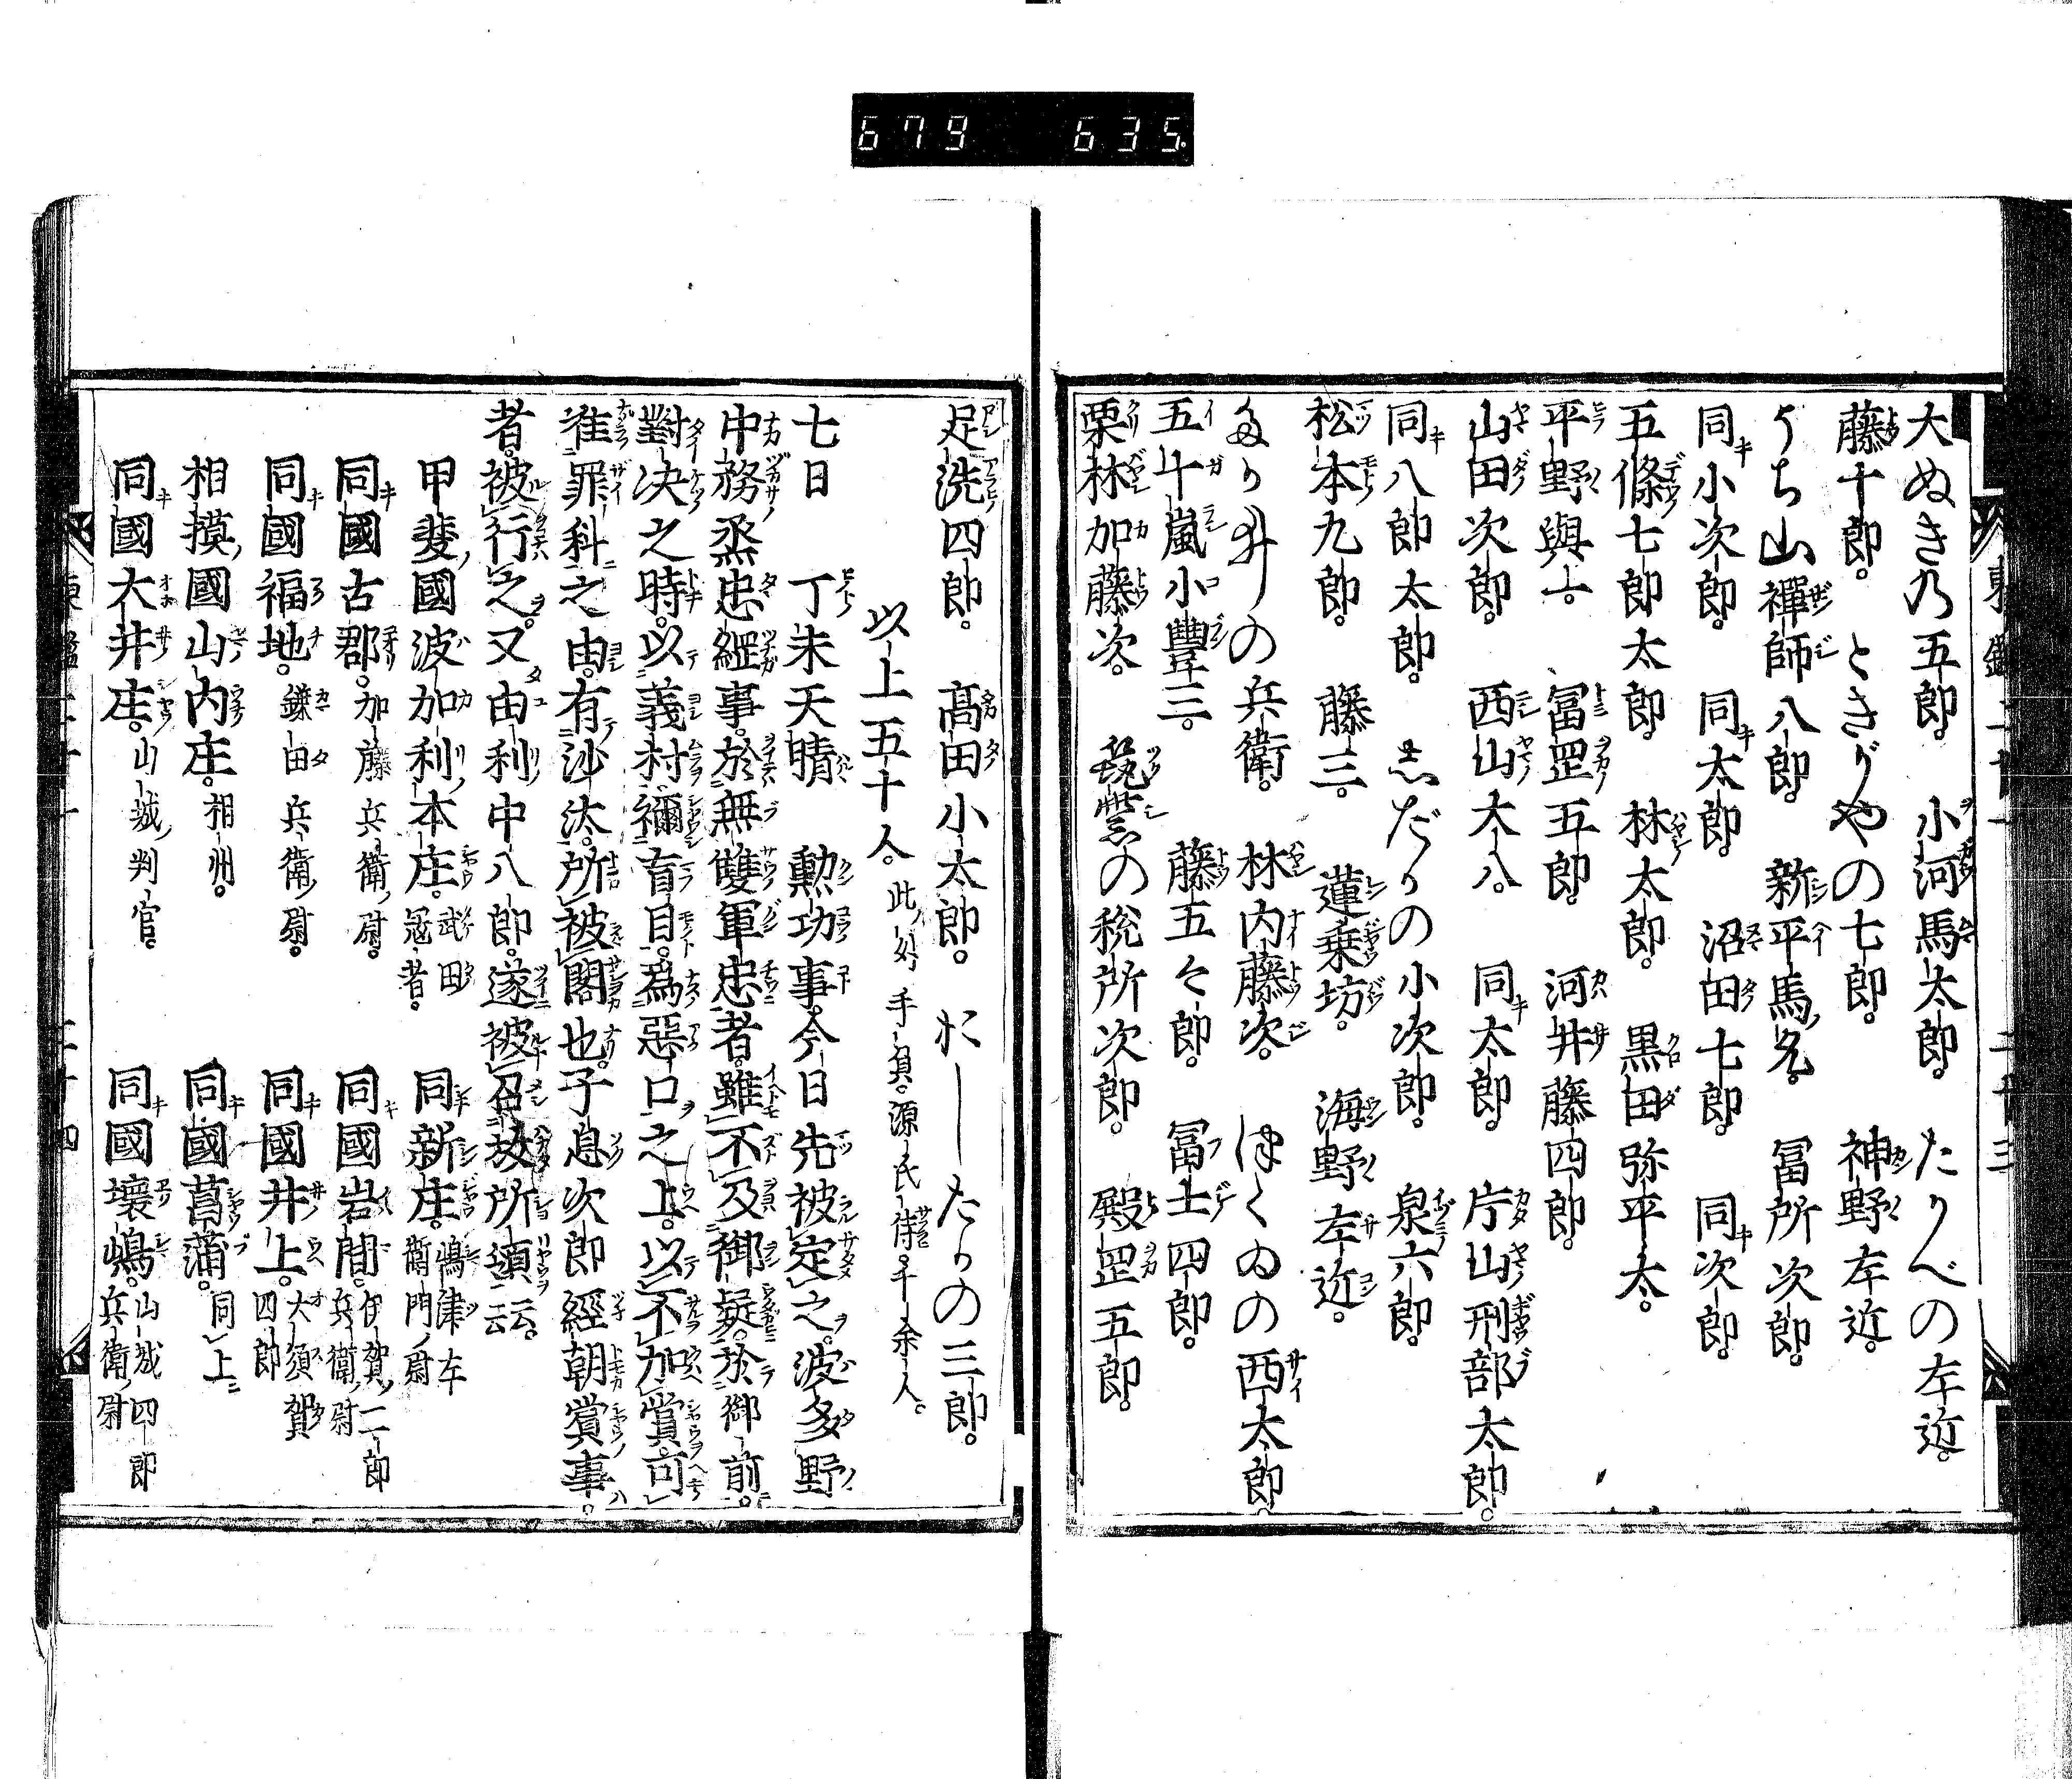 679 635
大ぬき乃五郎。 小河馬太郎。 たりべの左近。
藤十郎。 ときがやの七郎。 神野左近。
うち山禪師八郎。 新平馬允。 冨所次郎。
同小次郎。 同太郎 沼田七郎。 同次郎。
五條七郎太郎。 林太郎。 黒田弥平太。
平野與一。 冨罡五郎。 河井藤四郎。
山田次郎。 西山大八。 同太郎。 庁山刑部太郎。
同八郎太郎。 志だりの小次郎。 泉六郎。
松本九郎。 藤三。 蓮乗坊。 海野左近。
の兵衛。 林内藤次。 の西太郎。
五十嵐小豐三。 藤五々郎。 冨士四郎。
栗林加藤次。 の税所次郎。 殿罡五郎。
足洗四郎。 髙田小太郎。 たりの三郎。
以上五十人。 此外手負。源氏侍。千余人。
七日 丁未天晴 勲功事。今日先被定之。波多野
中務烝忠經事。於無雙軍忠者。雖不及御疑。於御前。
對決之時。以義村稱盲目。爲惡口之上。以不加賞。可
准罪科之由。有沙汰。所被閣也。子息次郎經朝賞事。
者。被行之。又由利中八郎。遂被召放所領云云。
甲斐國波加利本庄。武田冠者。 同新庄。嶋津左衛門尉
同國古郡。加藤兵衛尉。 同國岩間。伊賀二郎兵衛尉
同國福地。鎌田兵衛尉。 同國井上。大須賀四郎
相摸國山内庄。相州。 同國菖蒲。同上
同國大井庄。山城判官。 同國壞嶋。山城四郎兵衛尉